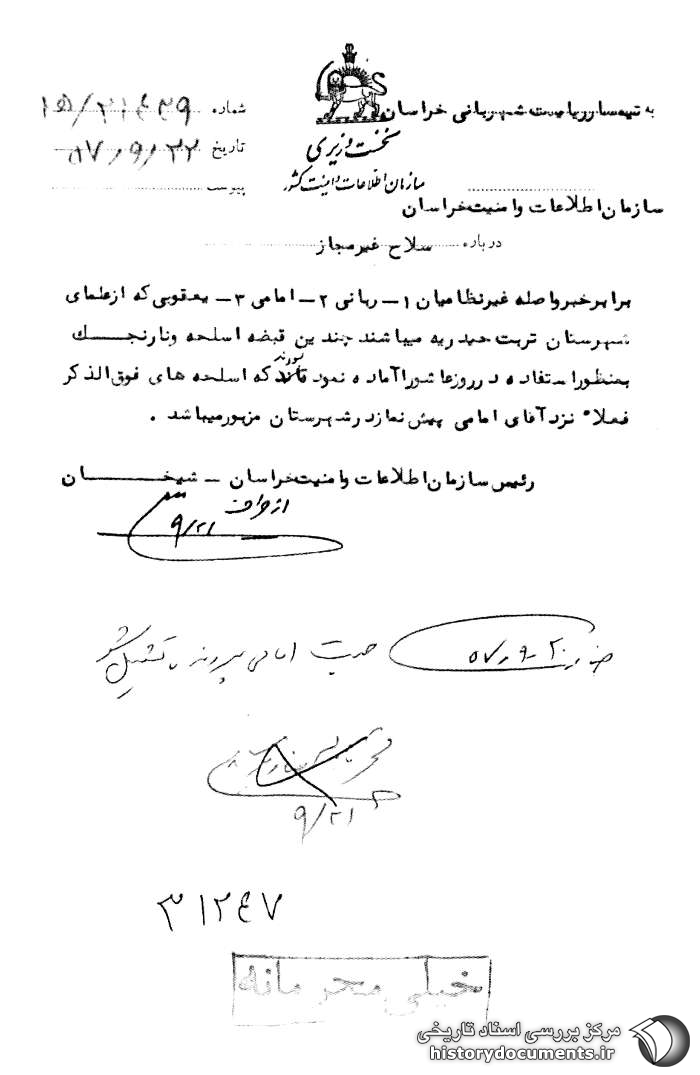 به تیمسار ریاست شهربانی خراسان
شماره
تاریخ
پیوست
نخست وزیری
سازمان اطلاعات و امنیت کشور
سازمان اطلاعات و امنیت خراسان
درباره سلاح غیرمجاز
برابر خبر واصله غیرنظامیان ۱- ربانی ۲- امامی ۳- یعقوبی که از علمای
شهرستان تربت حیدریه میباشند چندین قبضه اسلحه و نارنجک
بمنظور استفاده در روز عاشورا آماده نموده که اسلحه های فوق الذکر
فعلاً نزد آقای امامی پیش نماز در شهرستان مزبور میباشد .
رئیس سازمان اطلاعات و امنیت خراسان - شیخان
از طرف
۹/۲۱
۹/۲۱
۳۱۲۴۷
خیلی محرمانه
مرکز بررسی اسناد تاریخی
historydocuments.ir